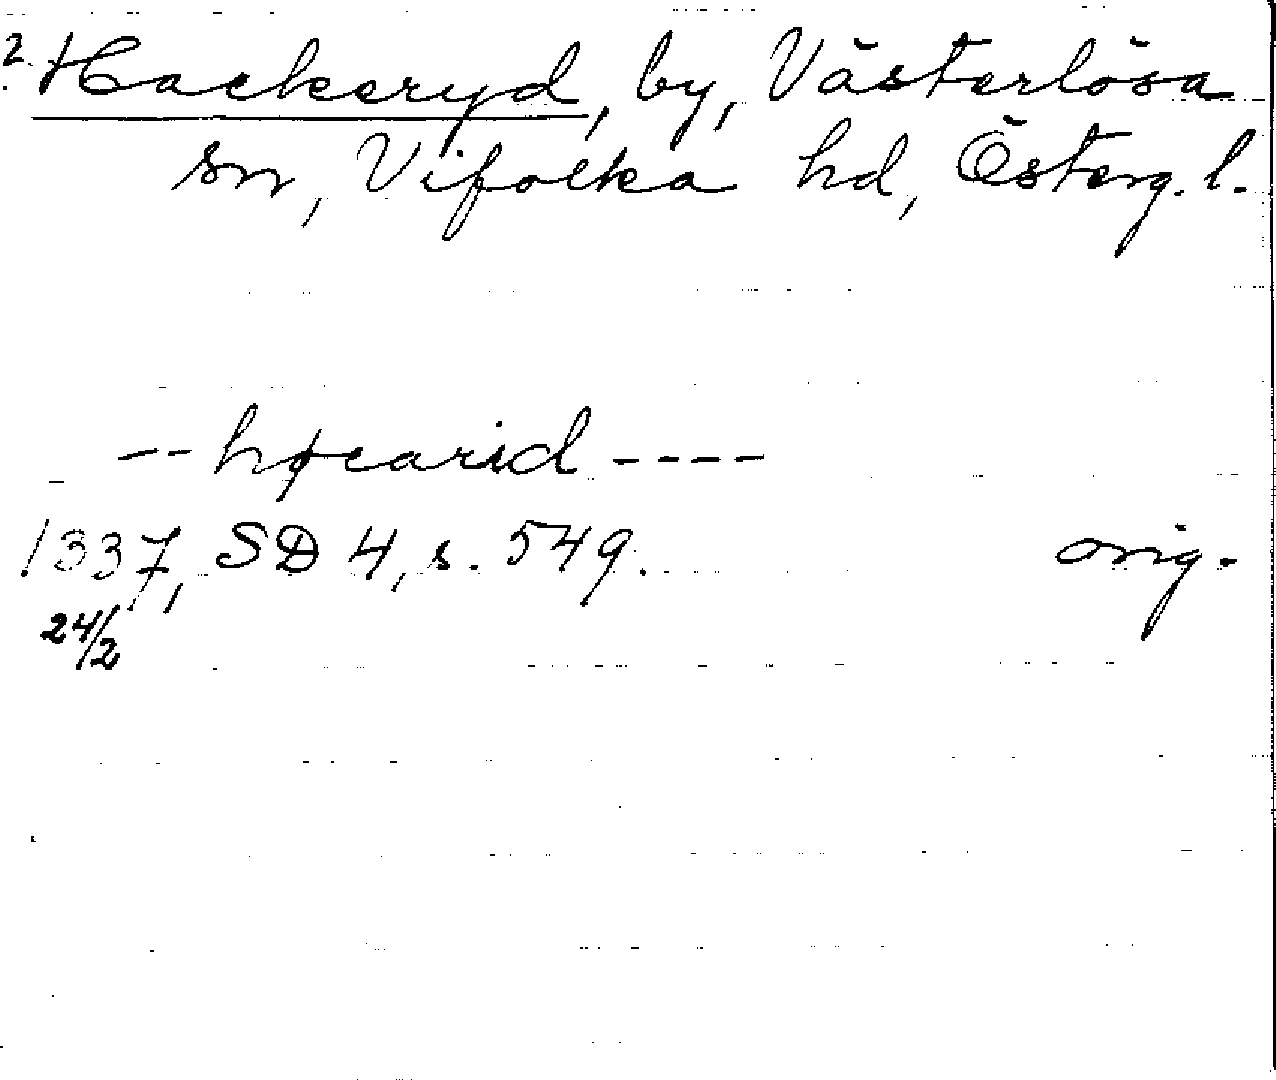 2. Hackeryd, by, Västerlösa
sn, Vifolka hd, Österg. l.
-- høcarid ----
1337, SD 4, s. 549. orig.
24/2